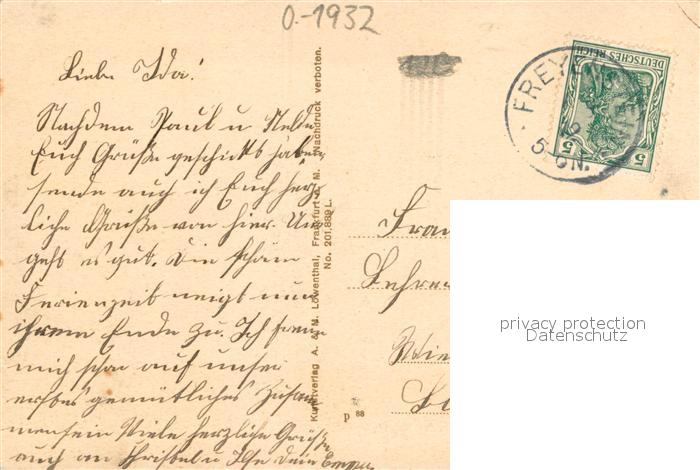 0-1932
Liebe Ida!
Nachdem Paul u
Euch Grüße geschickt haben
sende auch ich Euch herz
liche Grüße von hier. Uns
geht es gut. Die schöne
Ferienzeit neigt nun
ihrem Ende zu. Ich freue
mich schon auf unser
erstes gemütliches Zusam
mensein Viele herzliche Grüße
auch an Christel u Ilse Dein
Kunstverlag A. & M. Löwenthal, Frankfurt a. M. Nachdruck verboten.
No. 201,889 L.
p 88
DEUTSCHES REICH
5 5
FREY
5-6N.
Frau
Lehrer
privacy protection
Datenschutz